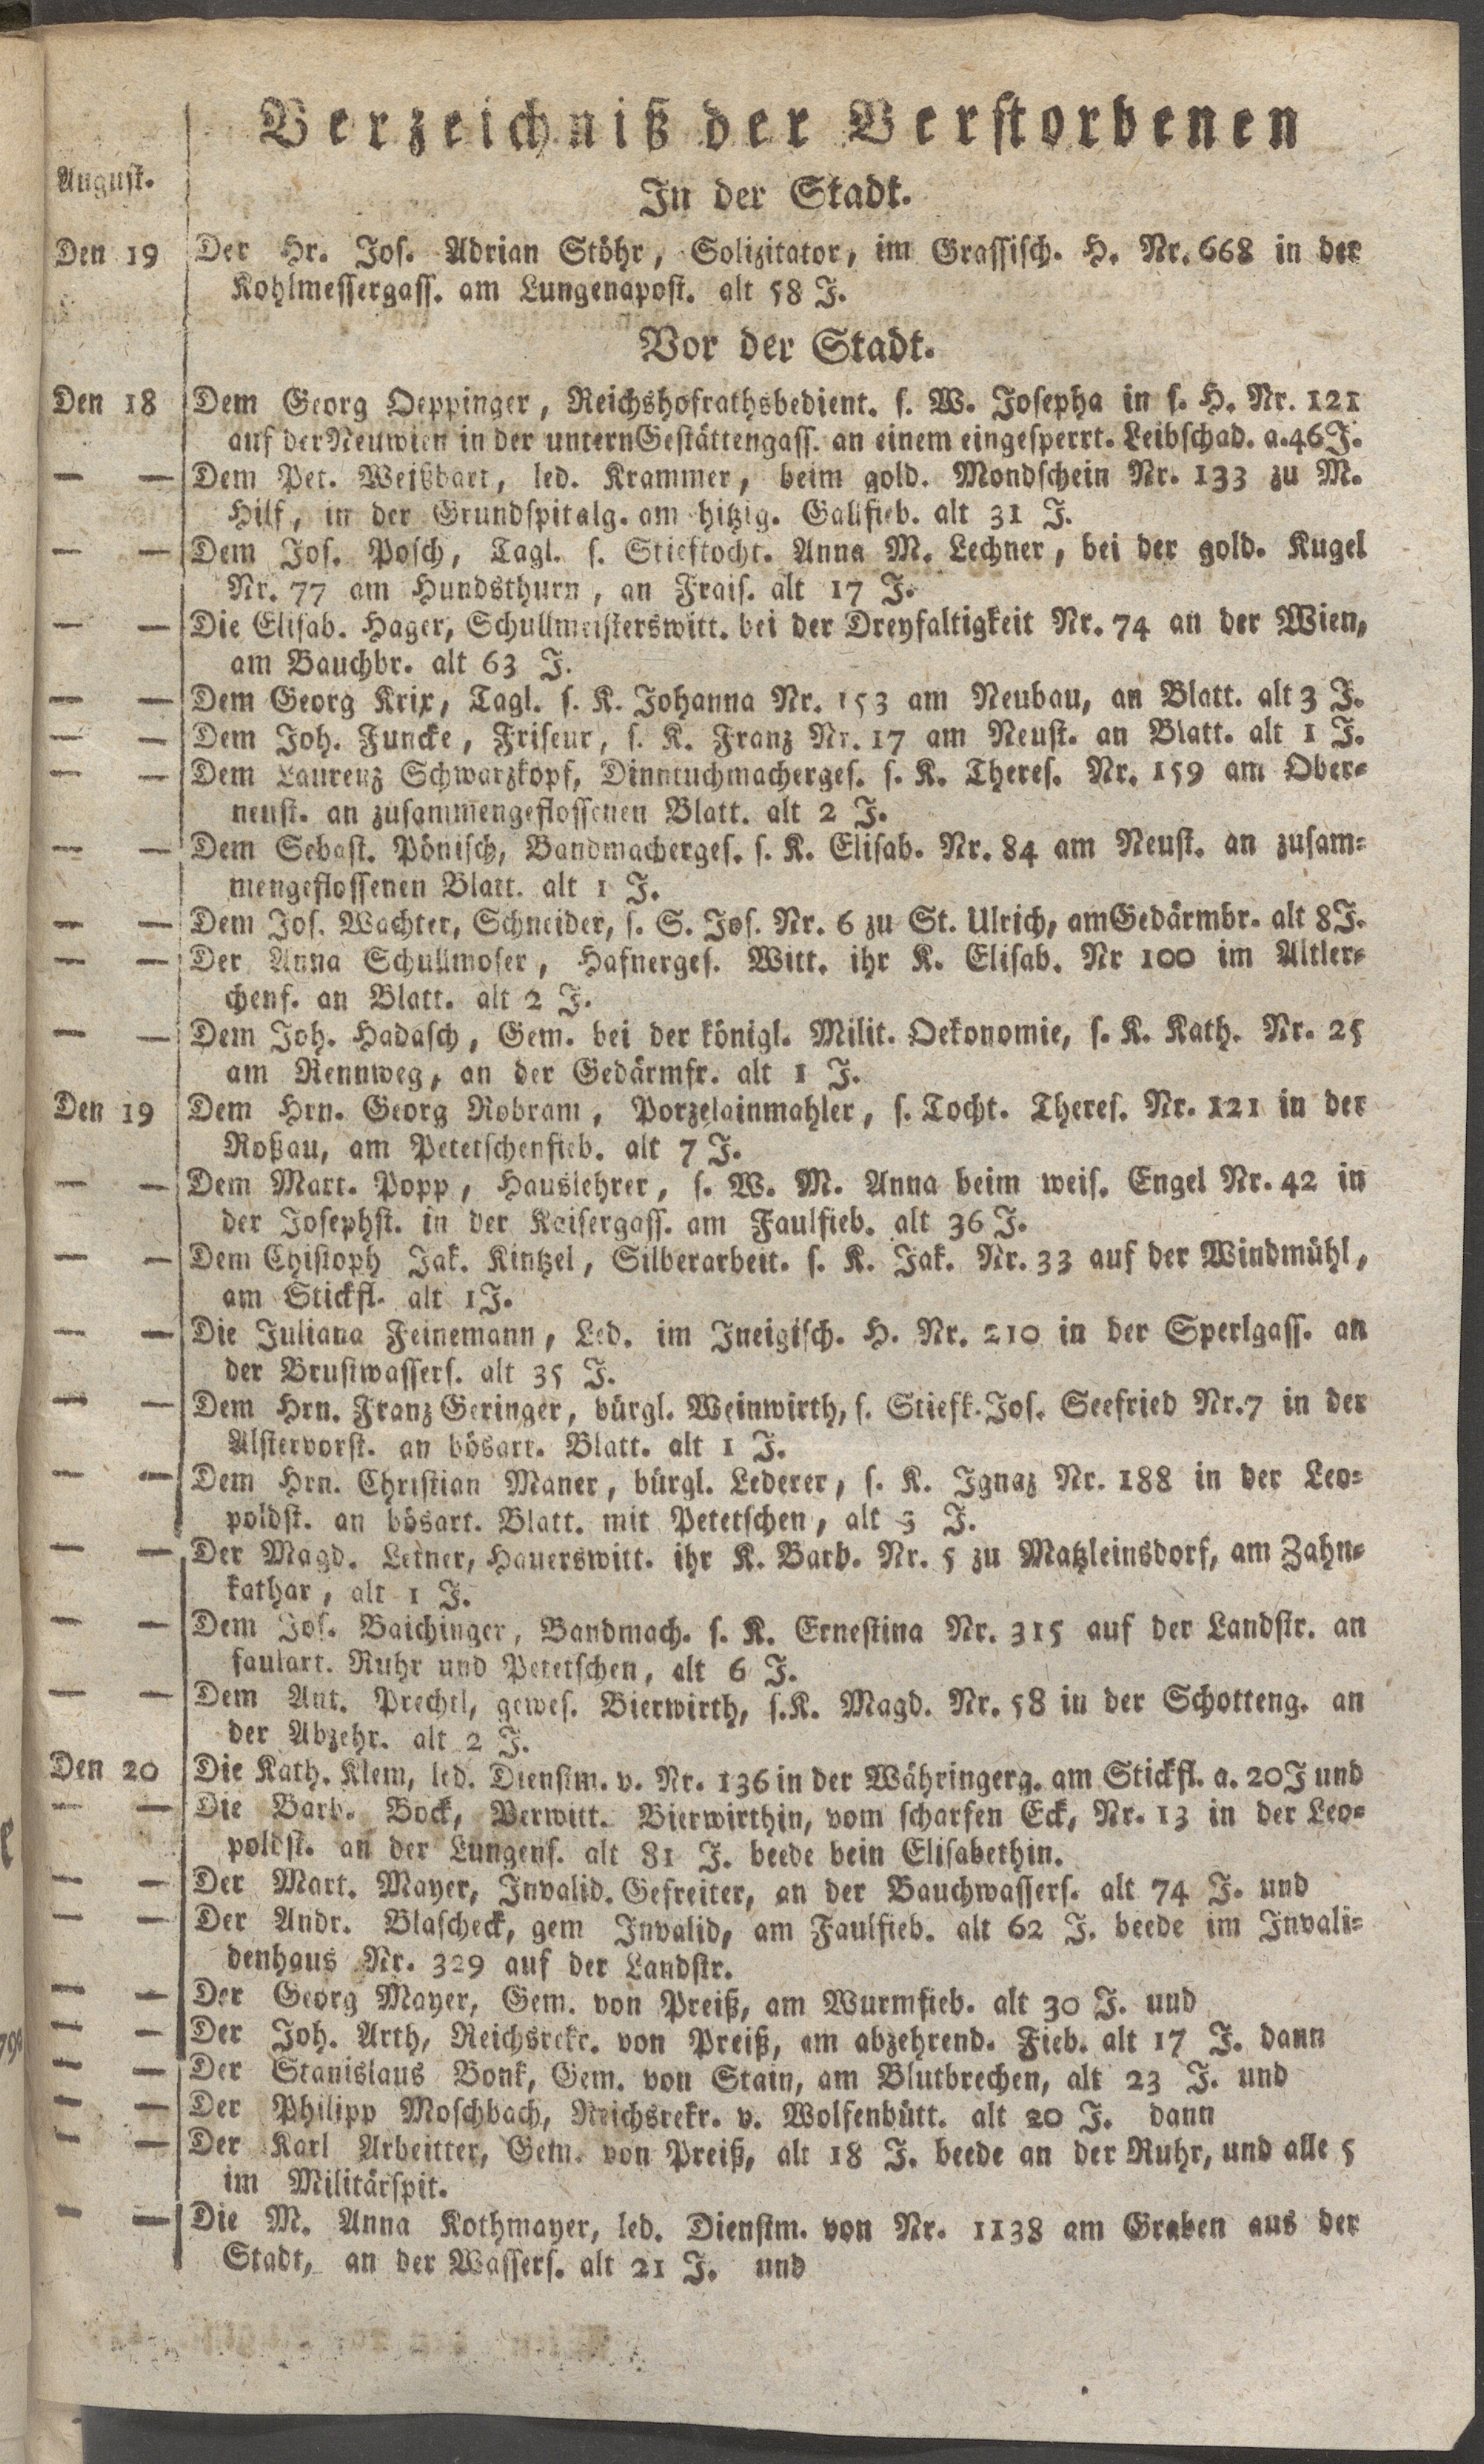 Verzeichniß der Verstorbenen
August.
In der Stadt.
Den 19 Der Hr. Jos. Adrian Stöhr, Solizitator, im Grassisch. H. Nr. 668 in der
Kohlmessergass. am Lungenapost. alt 58 J.
Vor der Stadt.
Den 18 Dem Georg Oeppinger, Reichshofrathsbedient. s. W. Josepha in s. H. Nr. 121
auf der Neuwien in der untern Gestättengass. an einem eingesperrt. Leibschad. a. 46 J.
— — Dem Pet. Weißbart, led. Krammer, beim gold. Mondschein Nr. 133 zu M.
Hilf, in der Grundspitalg. am hitzig. Gallfieb. alt 31 J.
— — Dem Jos. Posch, Tagl. s. Stieftocht. Anna M. Lechner, bei der gold. Kugel
Nr. 77 am Hundsthurn, an Frais. alt 17 J.
— — Die Elisab. Hager, Schullmeisterswitt. bei der Dreyfaltigkeit Nr. 74 an der Wien,
am Bauchbr. alt 63 J.
— — Dem Georg Krix, Tagl. s. K. Johanna Nr. 153 am Neubau, an Blatt. alt 3 J.
— — Dem Joh. Funcke, Friseur, s. K. Franz Nr. 17 am Neust. an Blatt. alt 1 J.
— — Dem Laurenz Schwarzkopf, Dinntuchmacherges. s. K. Theres. Nr. 159 am Ober-
neust. an zusammengeflossenen Blatt. alt 2 J.
— — Dem Sebast. Pönisch, Bandmacherges. s. K. Elisab. Nr. 84 am Neust. an zusam-
mengeflossenen Blatt. alt 1 J.
— — Dem Jos. Wachter, Schneider, s. S. Jos. Nr. 6 zu St. Ulrich, am Gedärmbr. alt 8 J.
— — Der Anna Schullmoser, Hafnerges. Witt. ihr K. Elisab. Nr 100 im Altler-
chenf. an Blatt. alt 2 J.
— — Dem Joh. Hadasch, Gem. bei der königl. Milit. Oekonomie, s. K. Kath. Nr. 25
am Rennweg, an der Gedärmfr. alt 1 J.
Den 19 Dem Hrn. Georg Robram, Porzelainmahler, s. Tocht. Theres. Nr. 121 in der
Roßau, am Petetschenfieb. alt 7 J.
— — Dem Mart. Popp, Hauslehrer, s. W. M. Anna beim weis. Engel Nr. 42 in
der Josephst. in der Kaisergass. am Faulfieb. alt 36 J.
— — Dem Chistoph Jak. Kintzel, Silberarbeit. s. K. Jak. Nr. 33 auf der Windmühl,
am Stickfl. alt 1 J.
— — Die Juliana Feinemann, Led. im Ineigisch. H. Nr. 210 in der Sperlgass. an
der Brustwassers. alt 35 J.
— — Dem Hrn. Franz Geringer, bürgl. Weinwirth, s. Stiefk. Jos. Seefried Nr. 7 in der
Alstervorst. an bösart. Blatt. alt 1 J.
— — Dem Hrn. Christian Maner, bürgl. Lederer, s. K. Ignaz Nr. 188 in der Leo-
poldst. an bösart. Blatt. mit Petetschen, alt 3 J.
— — Der Magd. Leiner, Hauerswitt. ihr K. Barb. Nr. 5 zu Matzleinsdorf, am Zahn-
kathar, alt 1 J.
— — Dem Jos. Baichinger, Bandmach. s. K. Ernestina Nr. 315 auf der Landstr. an
faulart. Ruhr und Petetschen, alt 6 J.
— — Dem Ant. Prechtl, gewes. Bierwirth, s. K. Magd. Nr. 58 in der Schotteng. an
der Abzehr. alt 2 J.
Den 20 Die Kath. Klem, led. Dienstm. v. Nr. 136 in der Währingerg. am Stickfl. a. 20 J und
— — Die Barb. Bock, Verwitt. Bierwirthin, vom scharfen Eck, Nr. 13 in der Leo-
poldst. an der Lungens. alt 81 J. beede bein Elisabethin.
— — Der Mart. Mayer, Invalid. Gefreiter, an der Bauchwassers. alt 74 J. und
— — Der Andr. Blascheck, gem Invalid, am Faulfieb. alt 62 J. beede im Invali-
denhaus Nr. 329 auf der Landstr.
— — Der Georg Mayer, Gem. von Preiß, am Wurmfieb. alt 30 J. und
— — Der Joh. Arth, Reichsrekr. von Preiß, am abzehrend. Fieb. alt 17 J. dann
— — Der Stanislaus Bonk, Gem. von Stain, am Blutbrechen, alt 23 J. und
— — Der Philipp Moschbach, Reichsrekr. v. Wolfenbütt. alt 20 J. dann
— — Der Karl Arbeitter, Gem. von Preiß, alt 18 J. beede an der Ruhr, und alle 5
im Militärspit.
— — Die M. Anna Kothmayer, led. Dienstm. von Nr. 1138 am Graben aus der
Stadt, an der Wassers. alt 21 J. und